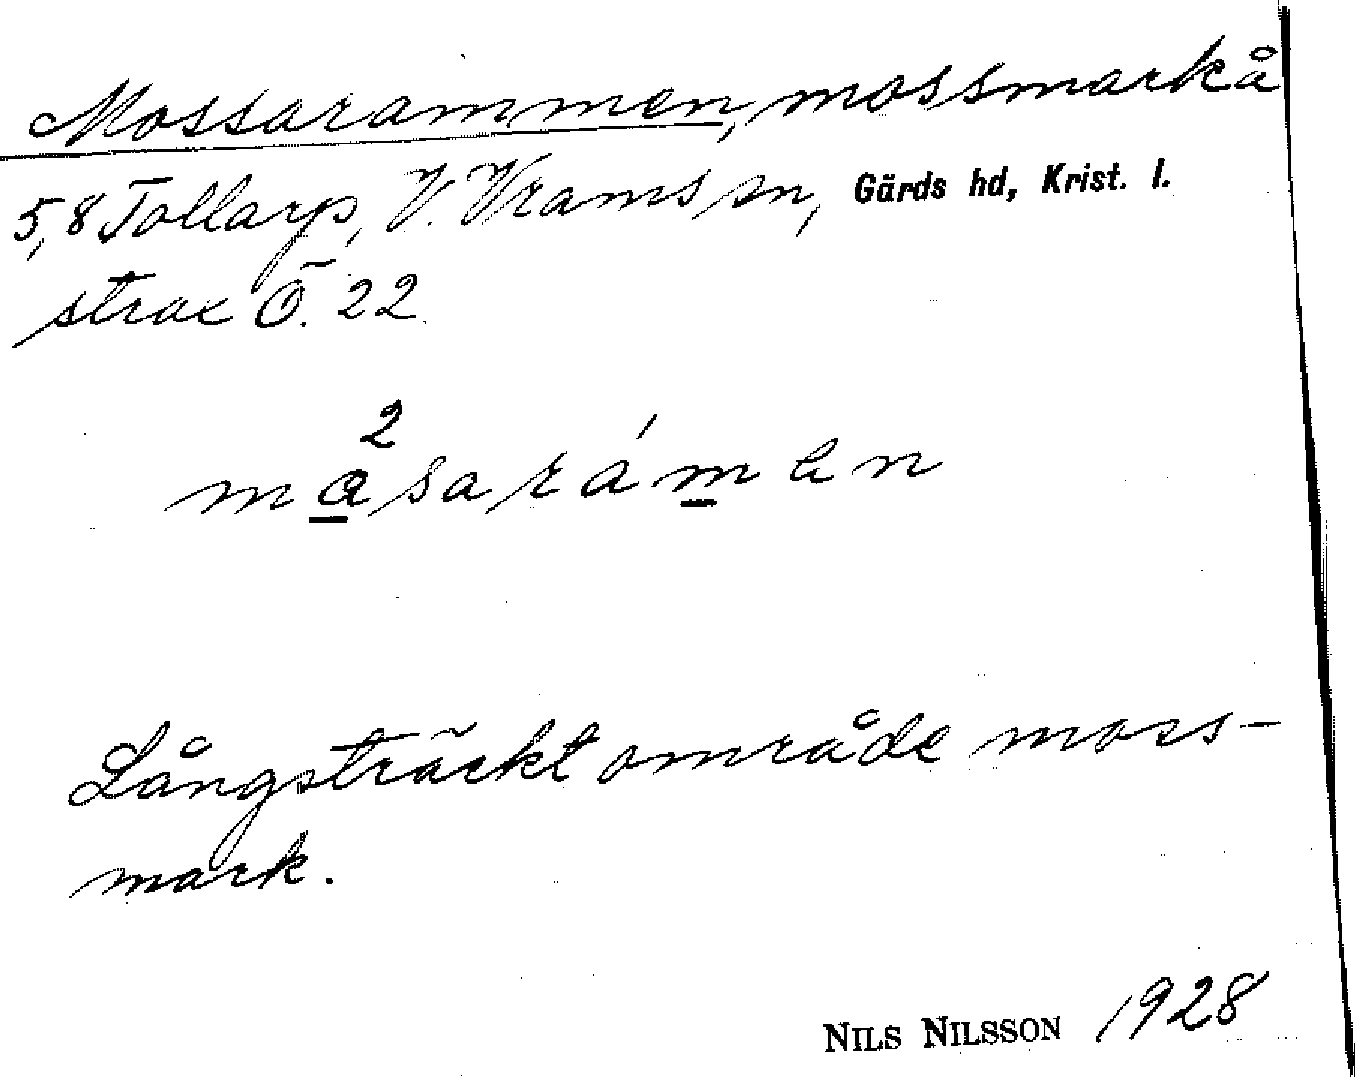 Mossarammen, mossmark å
5,8 Tollarp, V. Vrams sn, Gärds hd, Krist. l.
strax Ö. 22.
2
mɑsarámen
Långsträckt område moss-
mark.
NILS NILSSON 1928